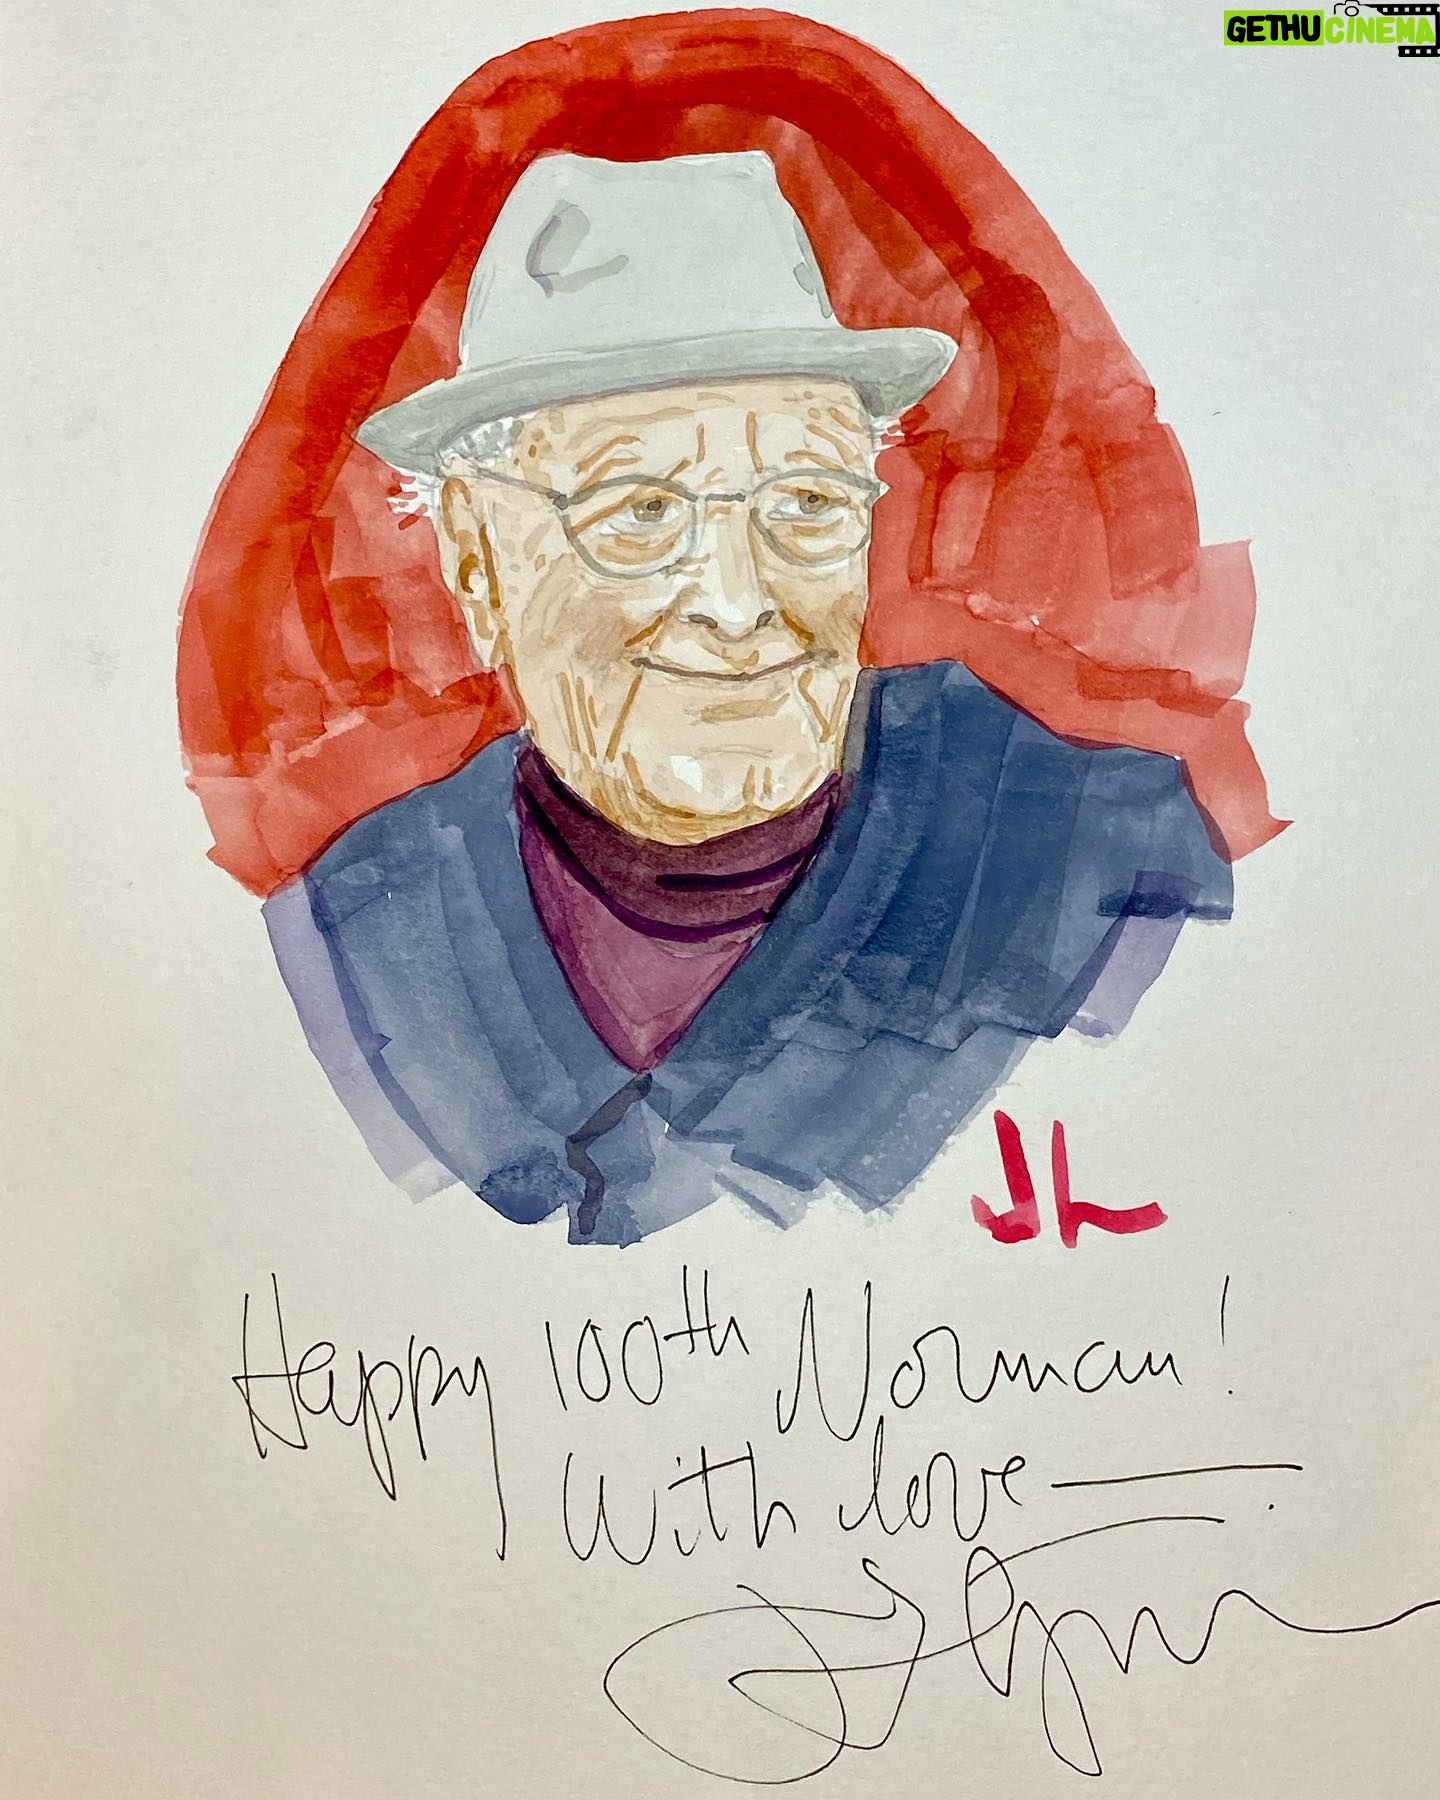 GETHUCINEMA
JL
Happy 100th Norman!
With love—